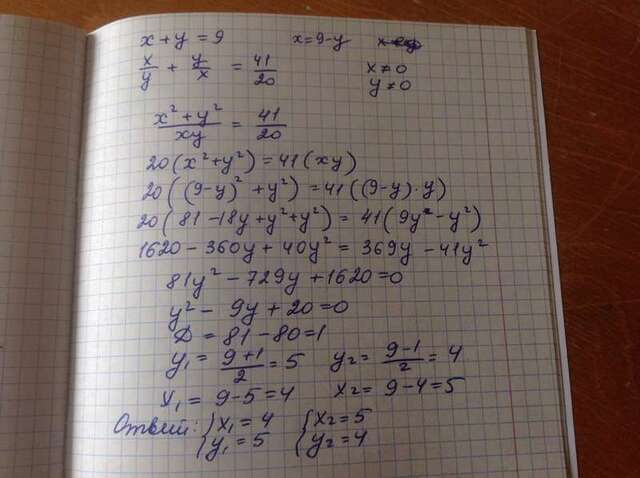 x + y = 9 x = 9 - y
x/y + y/x = 41/20 x ≠ 0
y ≠ 0
(x² + y²)/(xy) = 41/20
20(x² + y²) = 41(xy)
20((9-y)² + y²) = 41((9-y)·y)
20(81 - 18y + y² + y²) = 41(9y - y²)
1620 - 360y + 40y² = 369y - 41y²
81y² - 729y + 1620 = 0
y² - 9y + 20 = 0
D = 81 - 80 = 1
y₁ = (9+1)/2 = 5 y₂ = (9-1)/2 = 4
x₁ = 9 - 5 = 4 x₂ = 9 - 4 = 5
Ответ: { x₁ = 4 { x₂ = 5
y₁ = 5 y₂ = 4